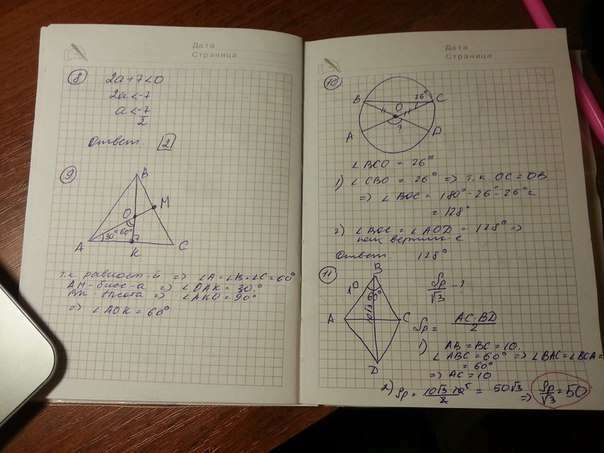 Дата
Страница
8
2a+7<0
2a<-7
a<-7
2
Ответ 2
9
B
O
M
30°
60°
A
K
C
т.к равност-й => ∠A=∠B=∠C=60°
AM-бисс-а => ∠OAK=30°
BK-высота => ∠AKO=90°
=> ∠AOK=60°
Дата
Страница
10
B
26°
C
O
?
A
D
∠BCO = 26°
1) ∠CBO = 26° => т.к OC=OB
=> ∠BOC = 180°-26°-26°=
= 128°
2) ∠BOC = ∠AOD = 128° =>
Ответ 128°
11
B
10
60°
10√3
A
C
D
Sp
√3 - ?
Sp = AC·BD
2
1) AB=BC=10.
∠ABC=60° => ∠BAC=∠BCA=
= 60°
=> AC=10
2) Sp = 10√3·10 = 50√3
2
=> Sp = 50
√3